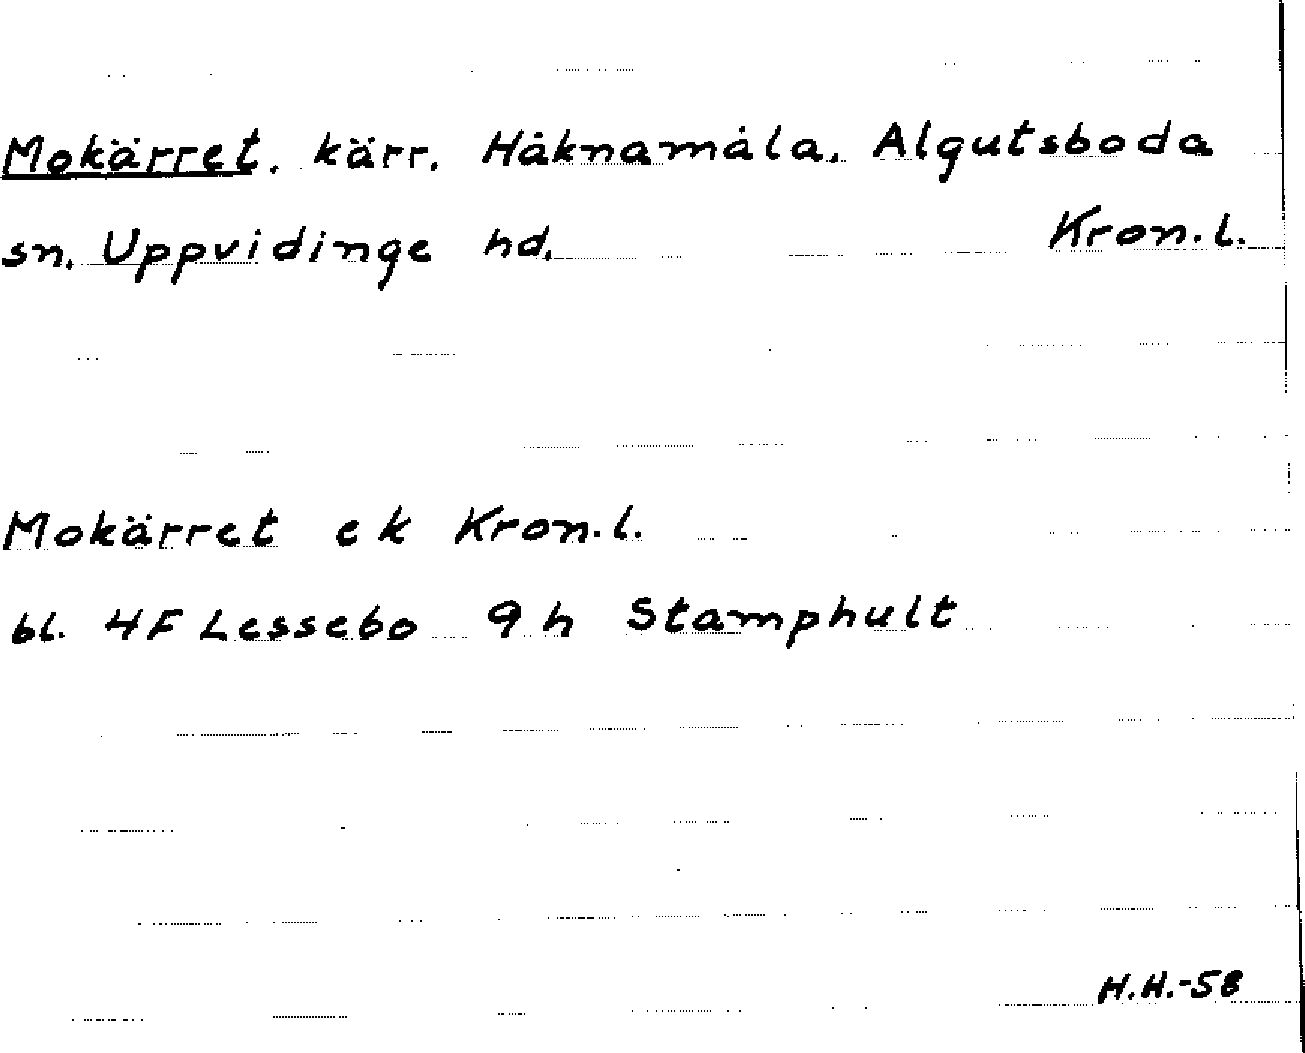 Mokärret, kärr, Håknamåla, Algutsboda
sn, Uppvidinge hd, Kron.l.
Mokärret ek Kron.l.
bl. 4F Lessebo 9h Stamphult
H.H.-58